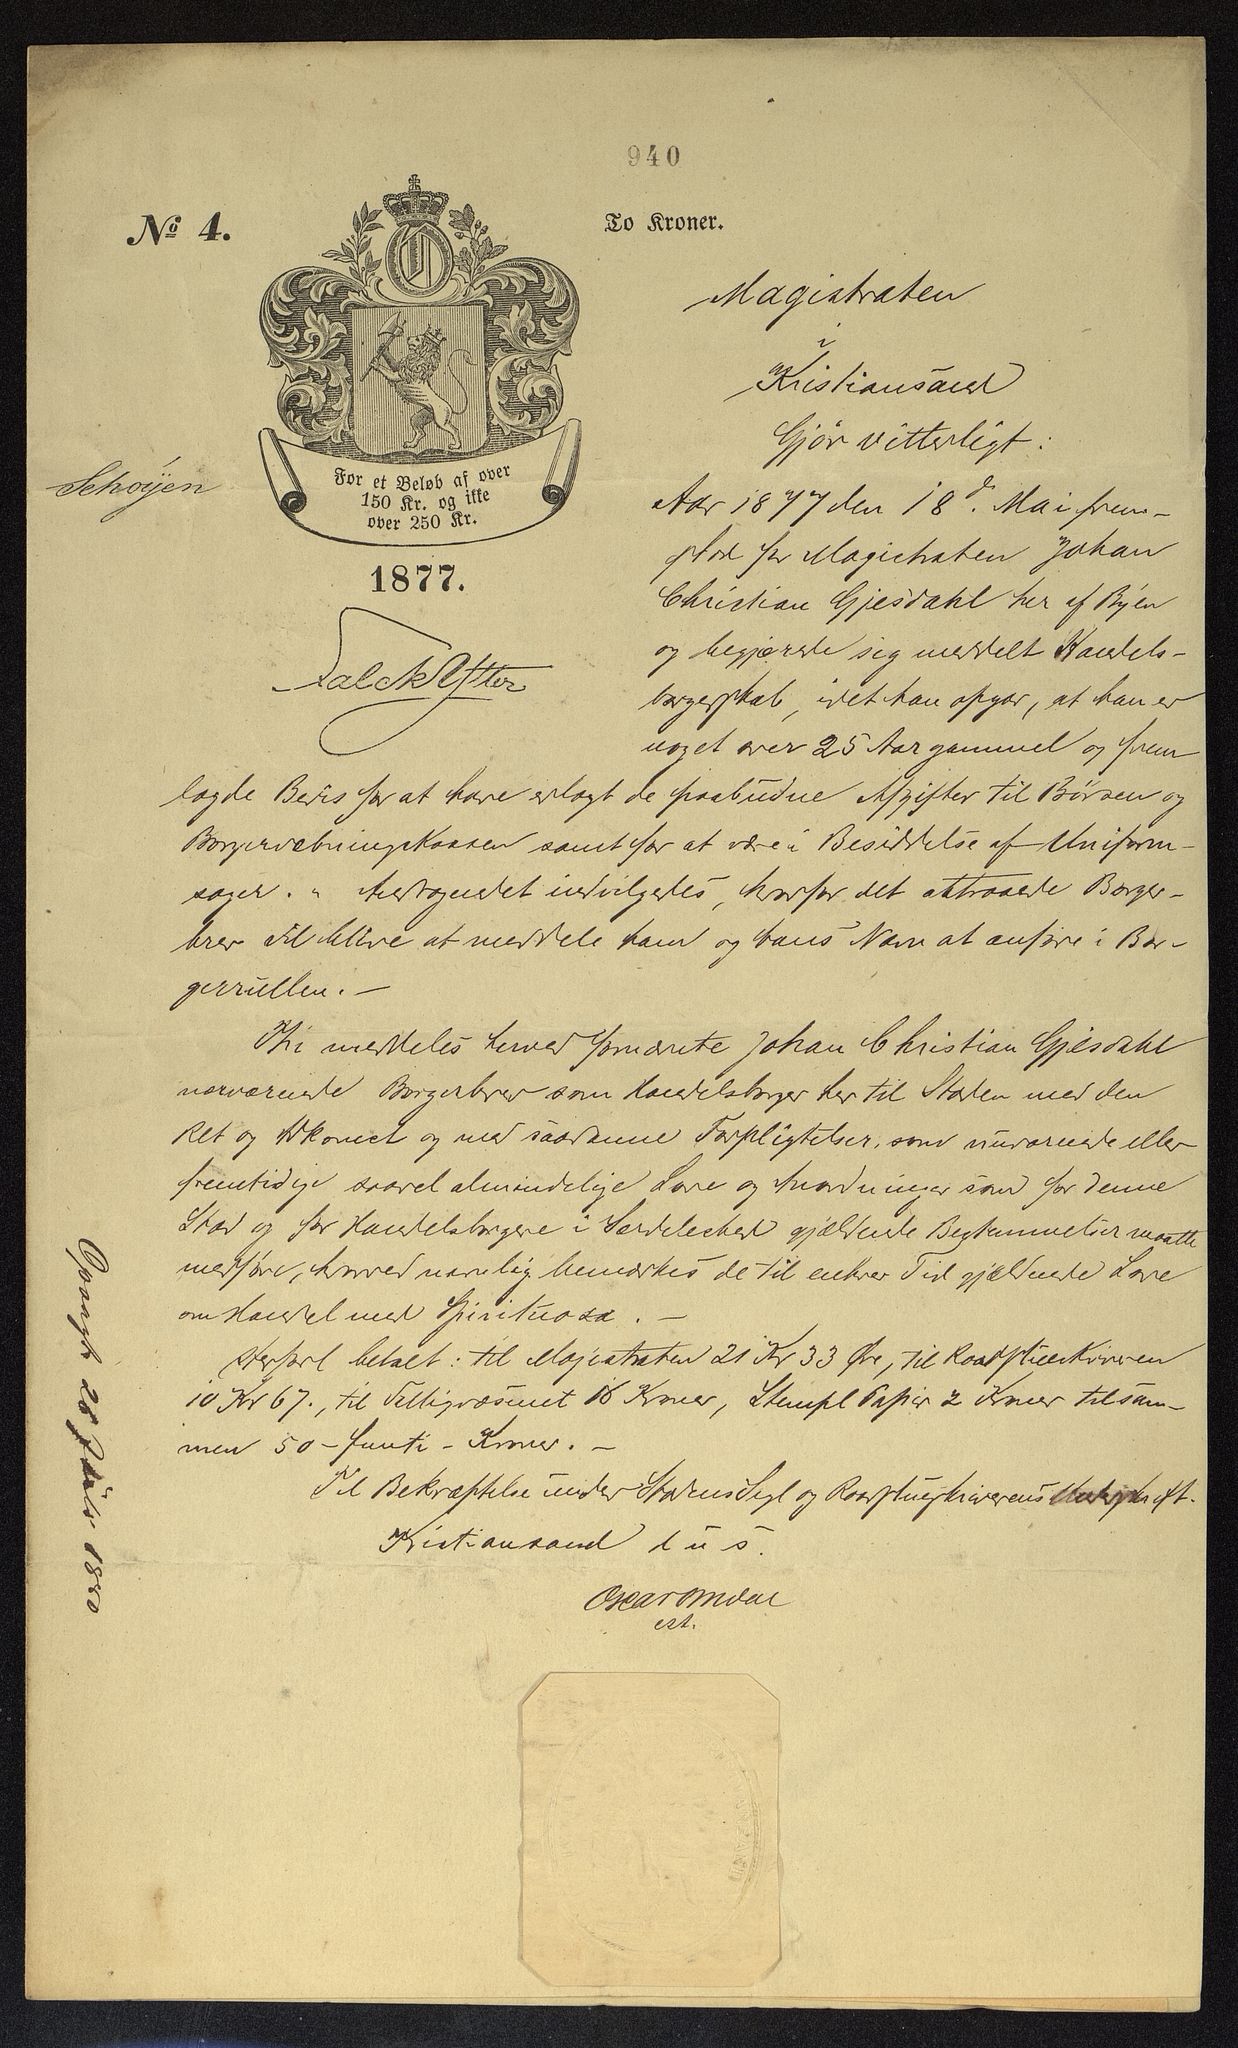 940
No 4.
To Kroner.
Magistraten
i
Kristianssand
Gjør vitterligt:
Schøyen
For et Beløb af over
150 Kr. og ikke
over 250 Kr.
1877.
Aar 1877 den 18d. Mai frem-
stod for Magistraten Johan
Christian Gjesdahl her af Byen
og begjærede sig meddelt Handels-
borgerskab, idet han opgav, at han er
noget over 25 Aar gammel og frem
lagde Bevis for at have erlagt de paabudne Afgifter til Børsen og
Borgervæbningskassen samt for at være i Besiddelse af Uniform-
sager. Andragendet indvilgedes, hvorfor det attraaede Borger-
brev vil blive at meddele ham og hans Navn at anføre i Bor-
gerrullen. -
Thi meddeles herved fornævnte Johan Christian Gjesdahl
nærværende Borgerbrev som Handelsborger her til Staden med den
Ret og Adkomst og med saadanne Forpligtelser, som nuværende eller
fremtidige saavel almindelige Love og Anordninger som for denne
Stad og for Handelsborgere i Særdeleshed gjældende Bestemmelser maatte
medføre, hvorved navnlig bemærkes de til enhver Tid gjældende Love
om Handel med Spirituosa. -
Herfor betalt: til Magistraten 21 Kr 33 Øre, til Raadstueskriveren
10 Kr 67., til Fattigvæsenet 16 Kroner, Stempl. Papir 2 Kroner tilsam-
men 50 - femti - Kroner. -
Til Bekræftelse under Stadens Segl og Raadstueskriverens Underskrift.
Kristianssand d u s.
Oscar Omdal
cst.
Opsagt 28 1880